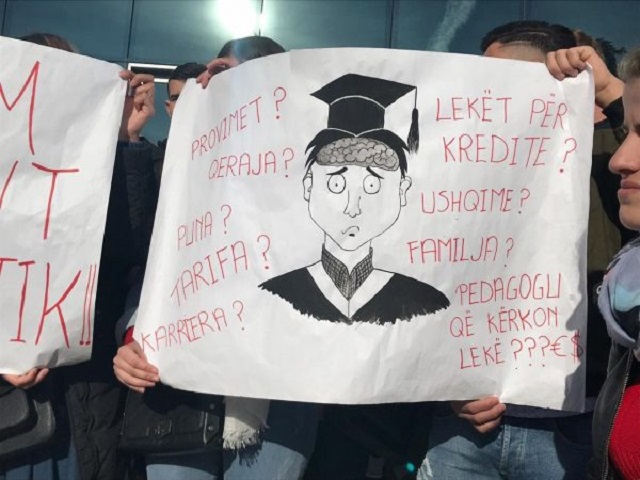 M
T
TIK!!
PROVIMET?
QERAJA?
PUNA?
TARIFA?
KARRIERA?
LEKËT PËR
KREDITE?
USHQIME?
FAMILJA?
PEDAGOGU
QË KËRKON
LEKË ???€$